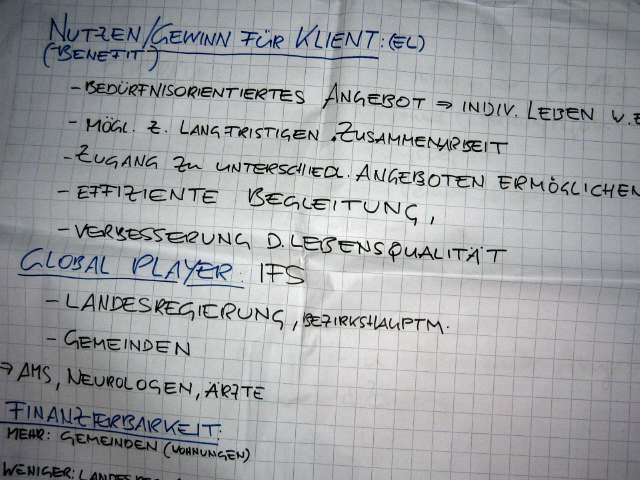 NUTZEN/GEWINN FÜR KLIENT: (EL)
(BENEFIT)
- BEDÜRFNISORIENTIERTES ANGEBOT ⇒ INDIV. LEBEN U. Z
- MÖGL. Z. LANGFRISTIGEN ZUSAMMENARBEIT
- ZUGANG ZU UNTERSCHIEDL. ANGEBOTEN ERMÖGLICHEN
- EFFIZIENTE BEGLEITUNG,
- VERBESSERUNG D. LEBENSQUALITÄT
GLOBAL PLAYER: IFS
- LANDESREGIERUNG, BEZIRKSHAUPTM.
- GEMEINDEN
→ AMS, NEUROLOGEN, ÄRZTE
FINANZIERBARKEIT:
MEHR: GEMEINDEN (WOHNUNGEN)
WENIGER: